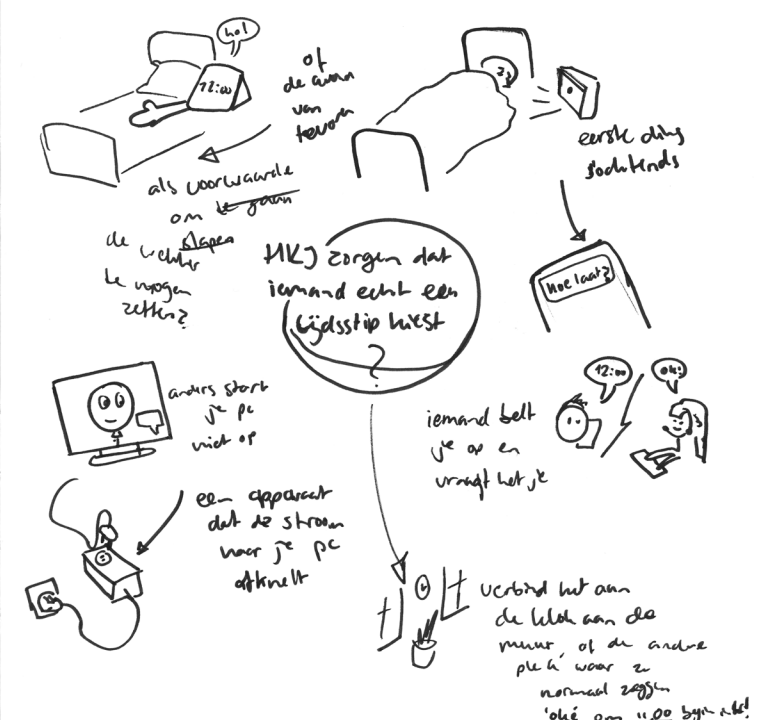 ho!
12:00
of
de avond
van
tevoren
als voorwaarde
om te gaan
slapen
de wekker
te mogen
zetten?
eerste ding
sochtends
Hoe laat?
HKJ zorgen dat
iemand echt een
tijdsstip kiest
?
anders start
je pc
niet op
een apparaat
dat de stroom
naar je pc
afknelt
12:00
ok!
iemand belt
je op en
vraagt het je
verbind het aan
de klok aan de
muur, of de andere
plek waar ze
normaal zeggen
'oké om 11:00 begin